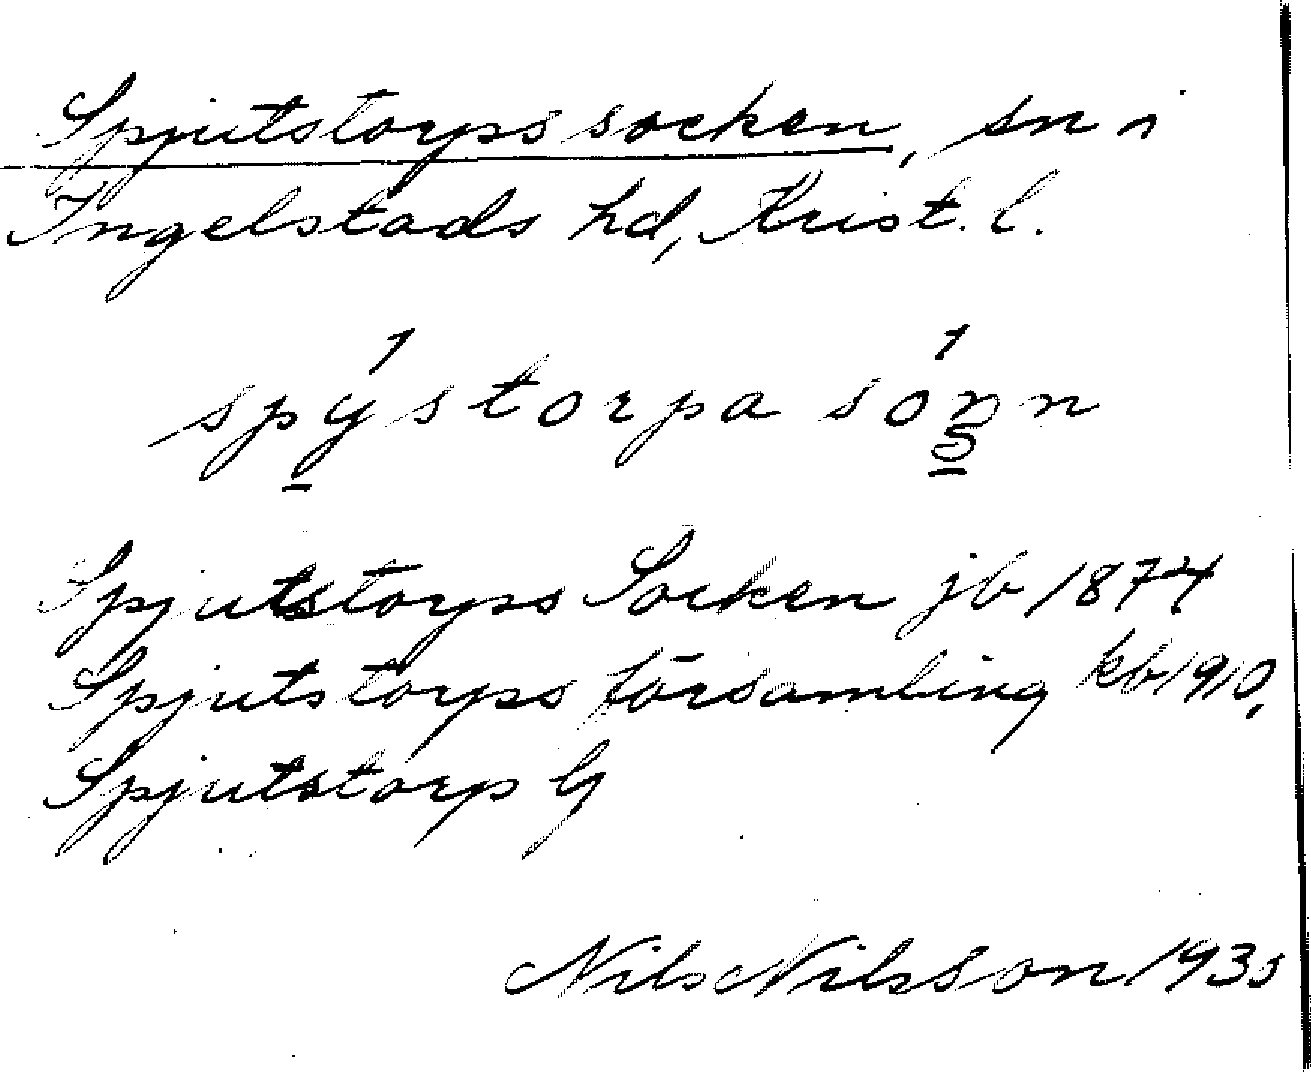 Spjutstorps socken, sn i
Ingelstads hd, Krist. l.
spýstorpa sónn
Spjutstorps Socken jb 1874
Spjutstorps församling kb 1910,
Spjutstorp G
Nils Nilsson 1930